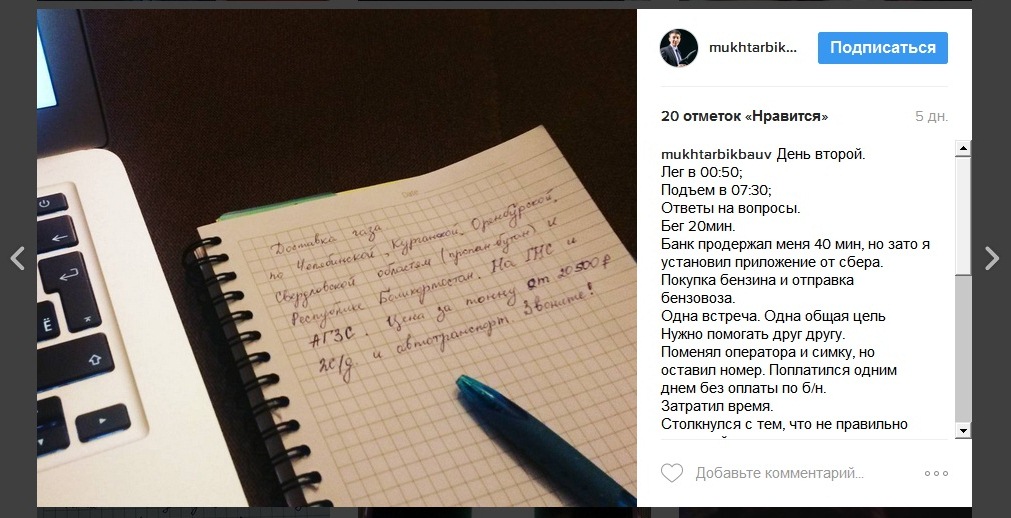 mukhtarbik...
Подписаться
20 отметок «Нравится»
5 дн.
mukhtarbikbauv День второй.
Лег в 00:50;
Подъем в 07:30;
Ответы на вопросы.
Бег 20мин.
Банк продержал меня 40 мин, но зато я
установил приложение от сбера.
Покупка бензина и отправка
бензовоза.
Одна встреча. Одна общая цель
Нужно помогать друг другу.
Поменял оператора и симку, но
оставил номер. Поплатился одним
днем без оплаты по б/н.
Затратил время.
Столкнулся с тем, что не правильно
Добавьте комментарий...
Доставка газа
по Челябинской, Курганской, Оренбургской,
Свердловской областям (пропан-бутан) и
Республике Башкортостан. На ГНС и
АГЗС. Цена за тонну от 20 500 ₽
ж/д и автотранспорт. Звоните!
Ё